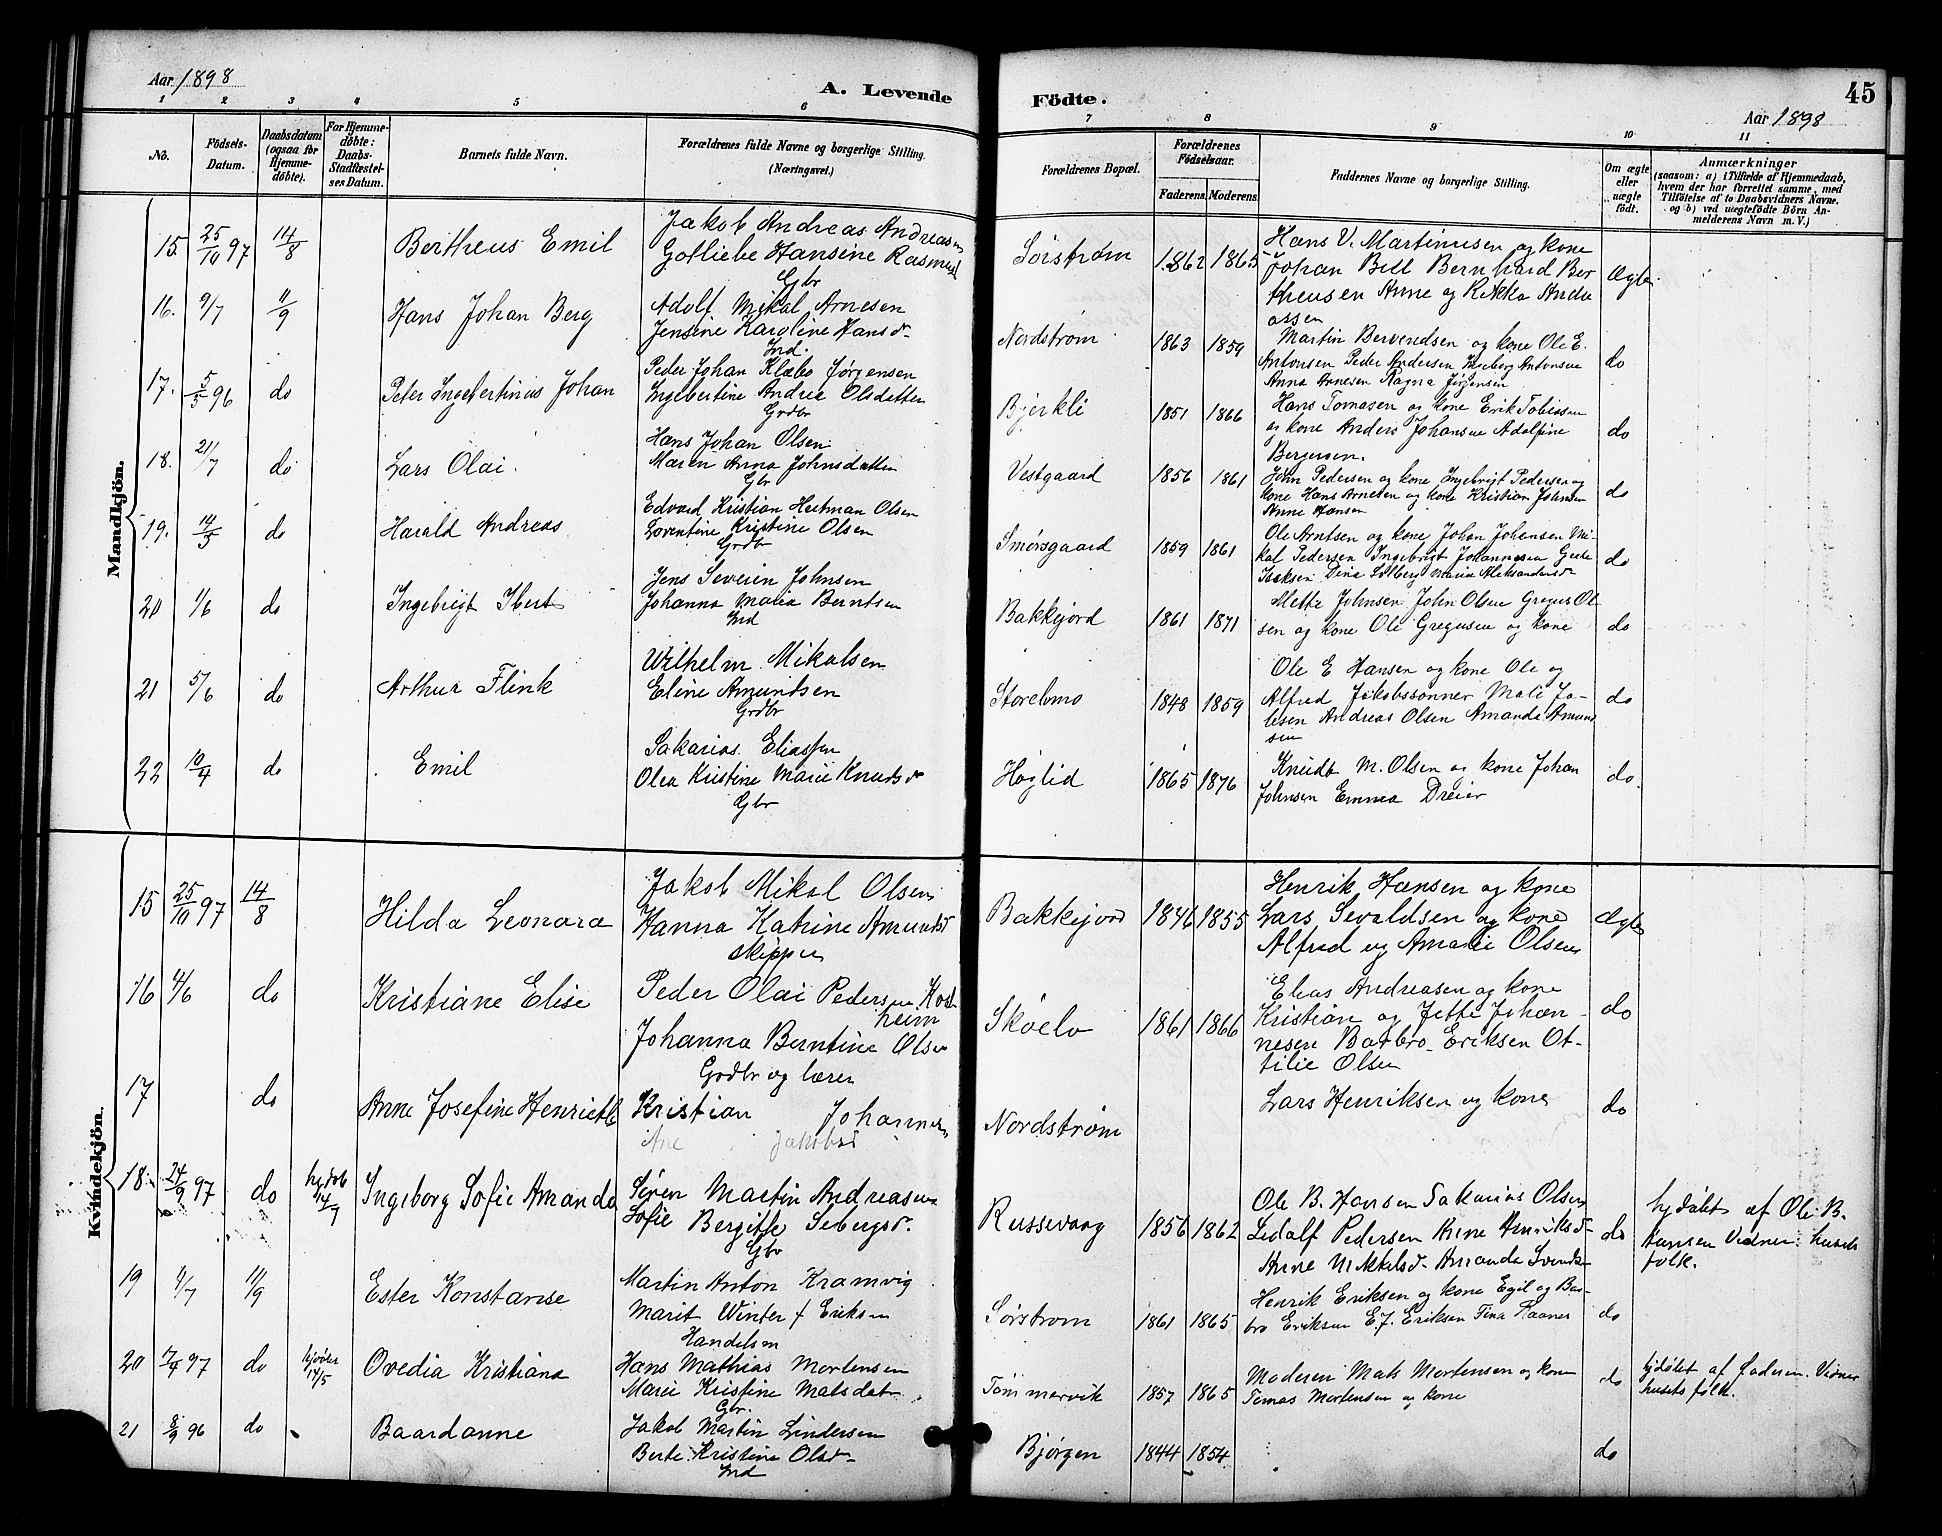 Aar 1898
A. Levende
Födte.
45
Aar 1898
1 2 3 4 5 6 7 8 9 10 11
No.
Födsels-
Datum.
Daabsdatum
(ogsaa for
Hjemme-
döbte).
For Hjemme-
döbte:
Daabs-
Stadfæstel-
ses Datum.
Barnets fulde Navn.
Forældrenes fulde Navne og borgerlige Stilling.
(Næringsvei.)
Forældrenes Bopæl.
Forældrenes
Födselsaar.
Faderens. Moderens.
Faddernes Navne og borgerlige Stilling.
Om ægte
eller
uægte
födt.
Anmærkninger
(saasom: a) i Tilfælde af Hjemmedaab,
hvem der har forrettet samme, med
Tilföielse af to Daabsvidners Navne,
og b) ved uægtefödte Börn An-
melderens Navn m. V.)
Mandkjön.
15 25/10 97 14/8 Bertheus Emil
Jakob Andreas Andreasen
Gotliebe Hansine Rasmusd
Gbr
Sörstrøm 1862 1865
Hans V. Martinusen og kone
Johan Bill Bernhard Ber
theusen Anne og Rikka Andre
assen
Ægte
16. 9/7 11/9 Hans Johan Berg
Adolf Mikal Arnesen
Jensine Karoline Hansdr
Ind.
Nordstrøm 1863 1859
Martin Berendsen og kone Ole E.
Antonsen Peder Andersen Ingeborg Antonsen
Anna Arnesen Ragna Jørgensen
do
17. 5/5 96 do Peter Ingebertinius Johan
Peder Johan Klæbo Jörgensen
Ingebertine Andrea Olsdatter
Grdbr
Bjerkli 1851 1866
Hans Tomasen og kone Erik Tobiassen
og kone Anders Johansen Adolfine
Bergersen.
do
18. 21/7 do Lars Olai
Hans Johan Olsen
Maren Anna Johnsdatter
Gbr
Vestgaard 1856 1861
John Pedersen og kone Ingebrigt Pedersen og
kone Hans Arnesen og kone Kristian Johnsen
Anne Hansen
do
19. 14/5 do Harald Andreas
Edvard Kristian Hertman Olsen
Lorentine Kristine Olsen
Grdbr
Smörsgaard 1859 1861
Ole Arntsen og kone Johan Johansen Mi-
kal Pedersen Ingebrigt Johannesen
Isaksen Dina Solberg Marie Aleksandersdr
do
20 1/6 do Ingebrigt Ibert
Jens Severin Johnsen
Johanna Maria Berntsen
Ind
Bakkejord 1861 1871
Mette Johnsen John Olsen Gregus Ol
sen og kone Ole Gregusen og kone
do
21 5/6 do Arthur Flink
Wilhelm Mikalsen
Eline Amundsen
Grdbr
Storelvmo 1848 1859
Ole E Hansen og kone Ole og
Alfred Jakobssønner Mali Ja-
Andreas Olsen Amanda Amund
sen
do
22 10/4 do Emil
Sakarias Eliassen
Olea Kristine Marie Knudsdr
Gbr
Höglid 1865 1876
Knudt M. Olsen og kone Johan
Johnsen Emma Dreier
do
Kvindekjön.
15 25/10 97 14/8 Hilda Leonora
Jakob Mikal Olsen
Hanna Katrine Amundsd
Skipper
Bakkejord 1846 1855
Henrik Hansen og kone
Lars Sevaldsen og kone
Alfred og Amalie Olsen
Ægte
16 4/6 do Kristiane Elise
Peder Olai Pedersen
heim
Johanna Berntine Olsen
Grdbr og lærer
Skoelv 1861 1866
Elias Andreasen og kone
Kristian og Jette Johan-
nesen Barbro Eriksen Ot-
tilie Olsen
do
17 do Anne Josefine Henriette
Kristian Johannes
Ane Jakobsd
Nordstrøm
Lars Henriksen og kone
do
18 24/9 97 do Ingeborg Sofie Amanda
Sören Martin Andreasen
Sofie Bergitte Sebergsd.
Gbr
Russevaag 1856 1862
Ole B. Hansen Sakarias Olsen
Ledolf Pedersen Anne Henriksd
Anne Mikkelsd Amanda Svendsen
do
hjdöbt af Ole B.
Hansen Vidner: husets
folk.
19 4/7 11/9 Ester Konstanse
Martin Anton Kramvig
Marit Winter f Eriksen
Handelsm
Sörstrøm 1861 1865
Henrik Eriksen og kone Egil og Bar-
bro Eriksen E.J. Eriksen Tina Raanes
do
20 7/4 97 do hjdöbt 14/5 Ovedia Kristiana
Hans Mathias Mortensen
Marie Kristine Matsdatr
Gbr.
Tömmervik 1857 1865
Moderen Mats Mortensen og kone
Tomas Mortensen og kone
do
hjdöbt af faderen. Vidner
husets folk.
21 8/9 96 do Baardanne
Jakob Martin Lindersen
Berte Kristine Olsdr
Ind
Bjørgen 1844 1854
do